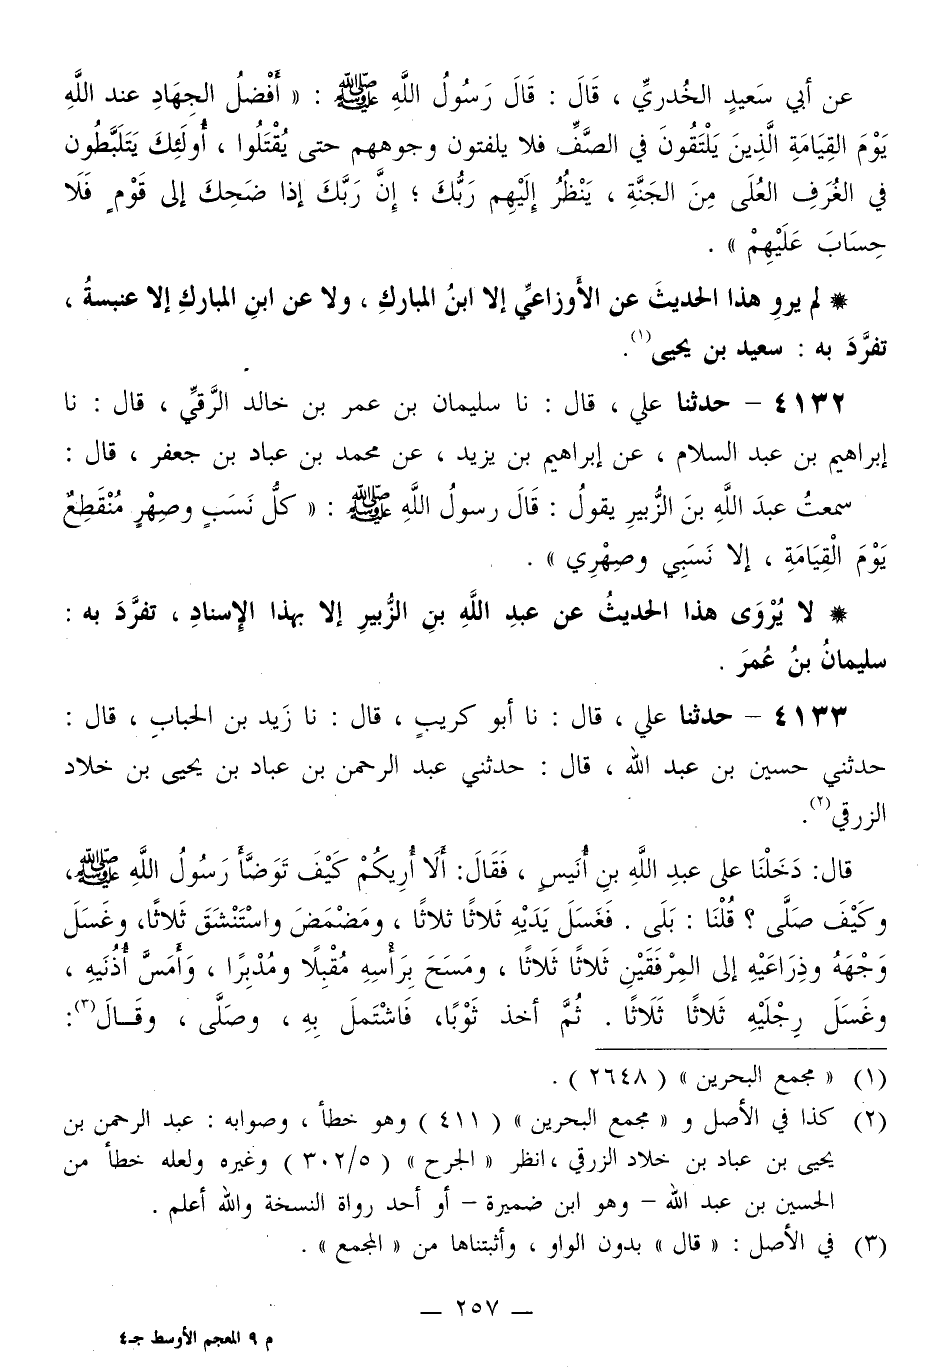 عن أبي سَعيدٍ الخُدريِّ ، قَالَ : قَالَ رَسُولُ اللَّهِ ﷺ : « أَفْضلُ الجِهَادِ عند اللَّهِ
يَوْمَ القِيَامَةِ الَّذِينَ يَلْتَقُونَ في الصَّفِّ فلا يلفتون وجوههم حتى يُقْتَلُوا ، أُولَئِكَ يَتَلَبَّطُون
في الغُرَفِ العُلَى مِنَ الجَنَّةِ ، يَنْظُرُ إِلَيْهِم رَبُّكَ ؛ إِنَّ رَبَّكَ إذا ضَحِكَ إلى قَوْمٍ فَلَا
حِسَابَ عَلَيْهِمْ » .
* لم يروِ هذا الحديثَ عن الأَوزاعيِّ إلا ابنُ المباركِ ، ولا عن ابنِ المباركِ إلا عنبسةُ ،
تفرَّدَ به : سعيد بن يحيى(١).
٤١٣٢ – حدثنا علي ، قال : نا سليمان بن عمر بن خالد الرَّقيِّ ، قال : نا
إبراهيم بن عبد السلام ، عن إبراهيم بن يزيد ، عن محمد بن عباد بن جعفر ، قال :
سمعتُ عبدَ اللَّهِ بنَ الزُّبيرِ يقولُ : قَالَ رسولُ اللَّهِ ﷺ : « كلُّ نَسَبٍ وصِهْرٍ مُنْقَطِعٌ
يَوْمَ الْقِيَامَةِ ، إلا نَسَبِي وصِهْرِي » .
* لا يُرْوَى هذا الحديثُ عن عبدِ اللَّهِ بنِ الزُّبيرِ إلا بهذا الإسنادِ ، تفرَّدَ به :
سليمانُ بنُ عُمرَ .
٤١٣٣ – حدثنا علي ، قال : نا أبو كريبٍ ، قال : نا زَيد بن الحبابِ ، قال :
حدثني حسين بن عبد الله ، قال : حدثني عبد الرحمن بن عباد بن يحيى بن خلاد
الزرقي(٢).
قال: دَخَلْنَا على عبدِ اللَّهِ بنِ أُنَيسٍ ، فَقَالَ: أَلَا أُرِيكُمْ كَيْفَ تَوَضَّأَ رَسُولُ اللَّهِ ﷺ،
وكَيْفَ صَلَّى ؟ قُلْنَا : بَلَى . فَغَسَلَ يَدَيْهِ ثَلَاثًا ثلاثًا ، ومَضْمَضَ واسْتَنْشَقَ ثَلاثًا، وغَسَلَ
وَجْهَهُ وذِرَاعَيْهِ إلى المِرْفَقَيْنِ ثَلاثًا ثَلاثًا ، ومَسَحَ بِرَأْسِهِ مُقْبِلًا ومُدْبِرًا ، وَأَمَسَّ أُذُنَيهِ ،
وغَسَلَ رِجْلَيْهِ ثَلَاثًا ثَلَاثًا . ثُمَّ أخذ ثَوْبًا، فَاشْتَملَ بِهِ ، وصَلَّى ، وقَـالَ(٣):
(١) « مجمع البحرين » ( ٢٦٤٨ ) .
(٢) كذا في الأصل و « مجمع البحرين » ( ٤١١ ) وهو خطأ ، وصوابه : عبد الرحمن بن
يحيى بن عباد بن خلاد الزرقي ،انظر « الجرح » ( ٣٠٢/٥ ) وغيره ولعله خطأ من
الحسين بن عبد الله – وهو ابن ضميرة – أو أحد رواة النسخة والله أعلم .
(٣) في الأصل : « قال » بدون الواو ، وأثبتناها من « المجمع » .
– ٢٥٧ –
م ٩ المعجم الأوسط جـ٤